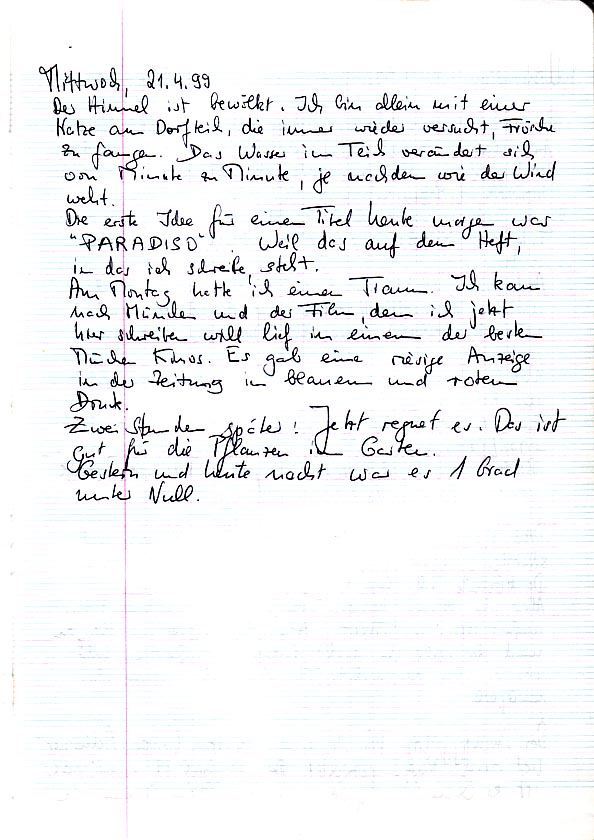 Mittwoch, 21.4.99
Der Himmel ist bewölkt. Ich bin allein mit einer
Katze am Dorfteich, die immer wieder versucht, Frösche
zu fangen. Das Wasser im Teich verändert sich
von Minute zu Minute, je nachdem wie der Wind
weht.
Die erste Idee für einen Titel heute morgen war
"PARADISO". Weil das auf dem Heft,
in das ich schreibe, steht.
Am Montag hatte ich einen Traum. Ich kam
nach München und der Film, den ich jetzt
hier schreiben will lief in einem der besten
Münchner Kinos. Es gab eine riesige Anzeige
in der Zeitung in blauem und rotem
Druck.
Zwei Stunden später! Jetzt regnet es. Das ist
gut für die Pflanzen im Garten.
Gestern und heute nacht war es 1 Grad
unter Null.